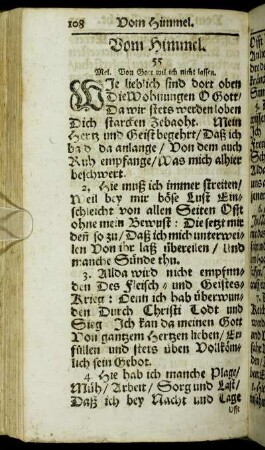 108 Vom Himmel.
Vom Himmel.
55
Mel. Von Gott wil ich nicht lassen.
Wie lieblich sind dort oben
Die Wohnungen O Gott/
Da wir stets werden loben
Dich starcken Zebaoht. Mein
Hertz und Geist begehrt/ Daß ich
bald da anlange/ Von dem auch
Ruh empfange/ Was mich alhier
beschwert.
2. Hie muß ich immer streiten/
Weil bey mir böse Lust Ein-
schleicht von allen Seiten Offt
ohne mein Bewust: Die setzt mir
denn so zu/ Daß ich mich unterwei-
len Von ihr laß übereilen/ Und
manche Sünde thu.
3. Allda wird nicht empfun-
den Des Fleisch- und Geistes
Krieg: Denn ich hab überwun-
den Durch Christi Todt und
Sieg. Ich kan da meinen Gott
Von gantzem Hertzen lieben/ Er-
füllen und stets üben Vollköm-
lich sein Gebot.
4. Hie hab ich manche Plage/
Müh/ Arbeit/ Sorg und Last/
Daß ich bey Nacht und Tage
Offt